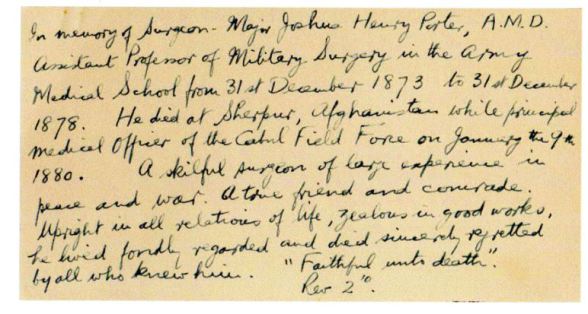 In memory of Surgeon-Major Joshua Henry Porter, A.M.D.
Assistant Professor of Military Surgery in the Army
Medical School from 31st December 1873 to 31st December
1878. He died at Sherpur, Afghanistan while principal
medical Officer of the Cabul Field Force on January the 9th
1880. A skilful surgeon of large experience in
peace and war. A true friend and comrade.
Upright in all relations of life, zealous in good works,
he lived fondly regarded and died sincerely regretted
by all who knew him. "Faithful unto death".
Rev 2